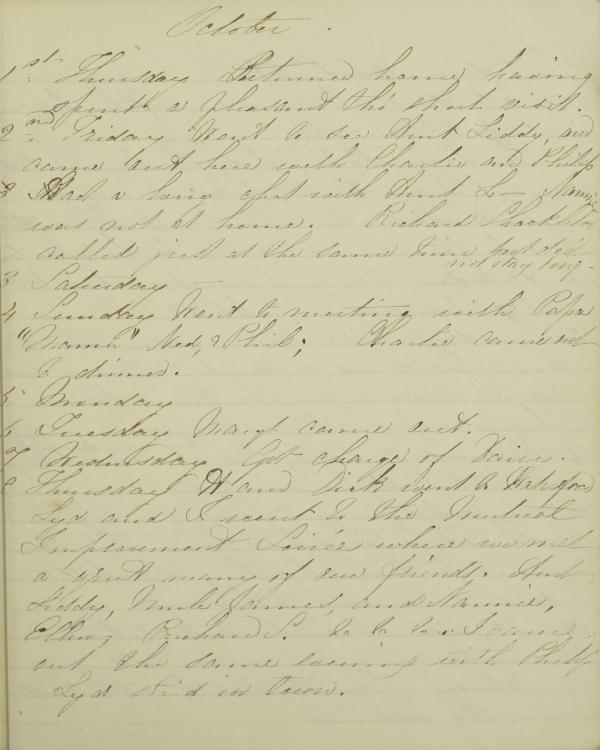 October.
1st. Thursday Returned home having
spent a pleasant tho' short visit.
2nd. Friday Went to see Aunt Liddy, and
came out here with Charlie and Philip
3 Had a long chat with Aunt L— Nannie
was not at home. Richard Shackleton
called just at the same time but did
not stay long—
3 Saturday —
4 Sunday Went to meeting with Papa
"Mama" Ned, & Phil; Charlie came out
to dinner.
5 Monday
6 Tuesday Margt. came out.
7 Wednesday Got charge of Daisy.
8 Thursday and Dick went to
Lyd and I went to the Mutual
Improvement Soirée where we met
a great many of our friends. Aunt
Liddy, Uncle James, and Nannie,
Ellen, Richard S. &c &c &c. I came
out the same evening with Philip
Lyd stid in town.